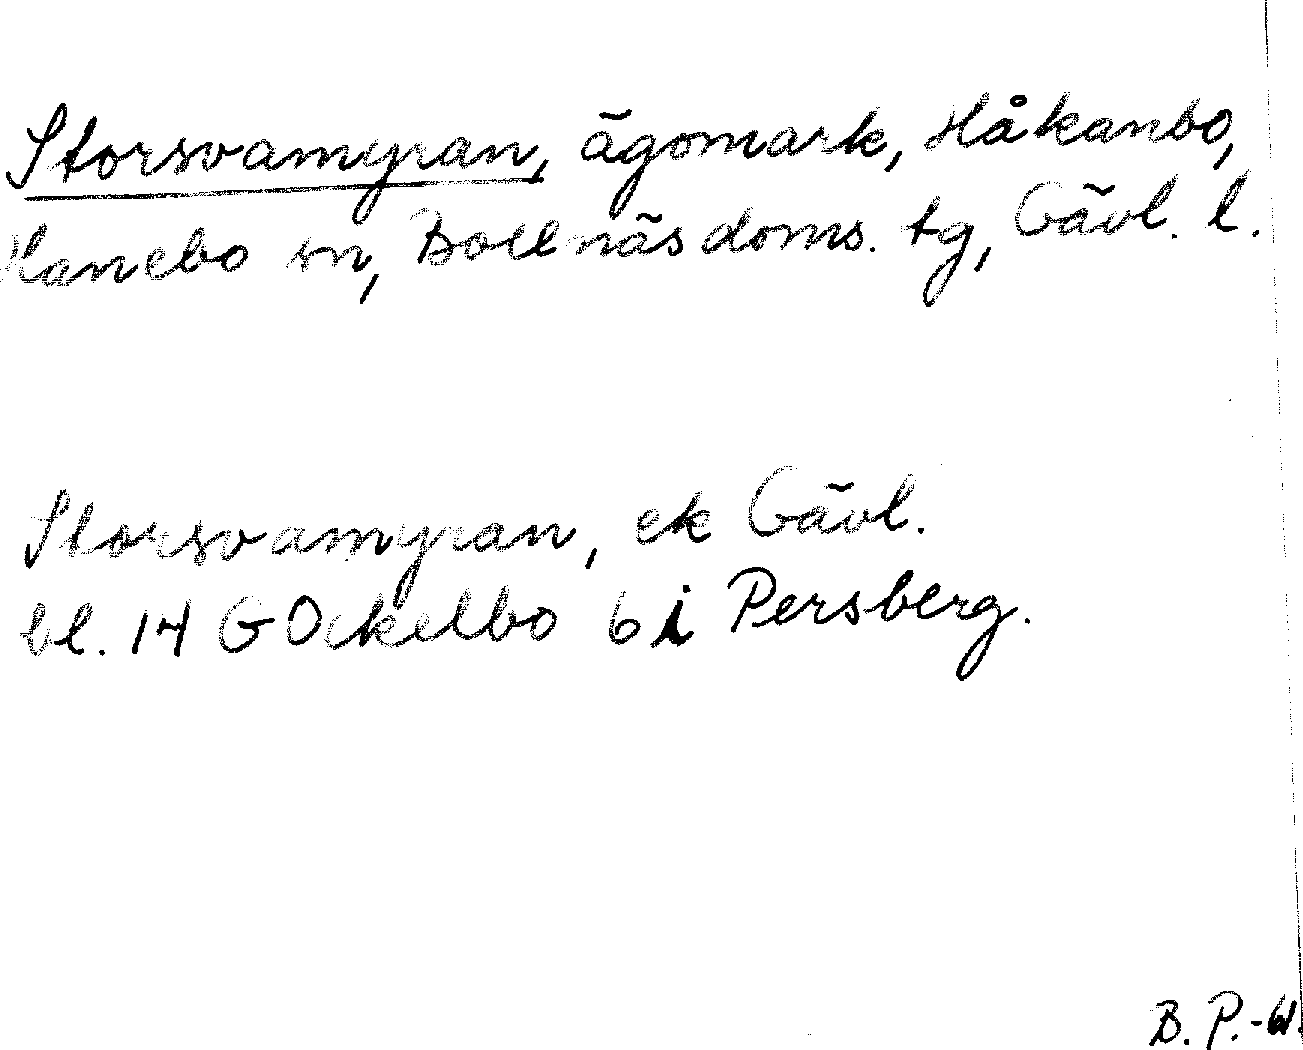 Storsvamyran, ägomark, Håkanbo,
Hanebo sn, Bollnäs doms. tg, Gävl. l.
Storsvamyran, ek Gävl.
bl. 14 G Ockelbo 6 i Persberg.
B. P.-W.